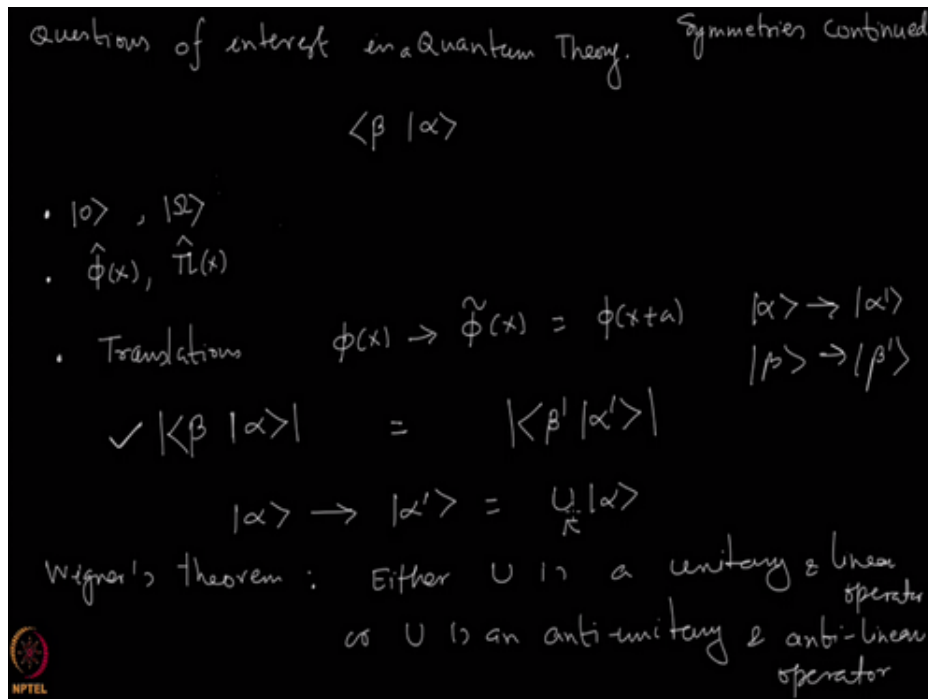 Questions of interest in a Quantum Theory. Symmetries Continued
⟨β |α⟩
• |0⟩ , |Ω⟩
• φ̂(x), π̂(x)
• Translations φ(x) → φ̃(x) = φ(x+a) |α⟩ → |α'⟩
|β⟩ → |β'⟩
✓ |⟨β |α⟩| = |⟨β' |α'⟩|
|α⟩ → |α'⟩ = U |α⟩
Wigner's theorem : Either U is a unitary & linear
operator
or U is an anti-unitary & anti-linear
operator
NPTEL